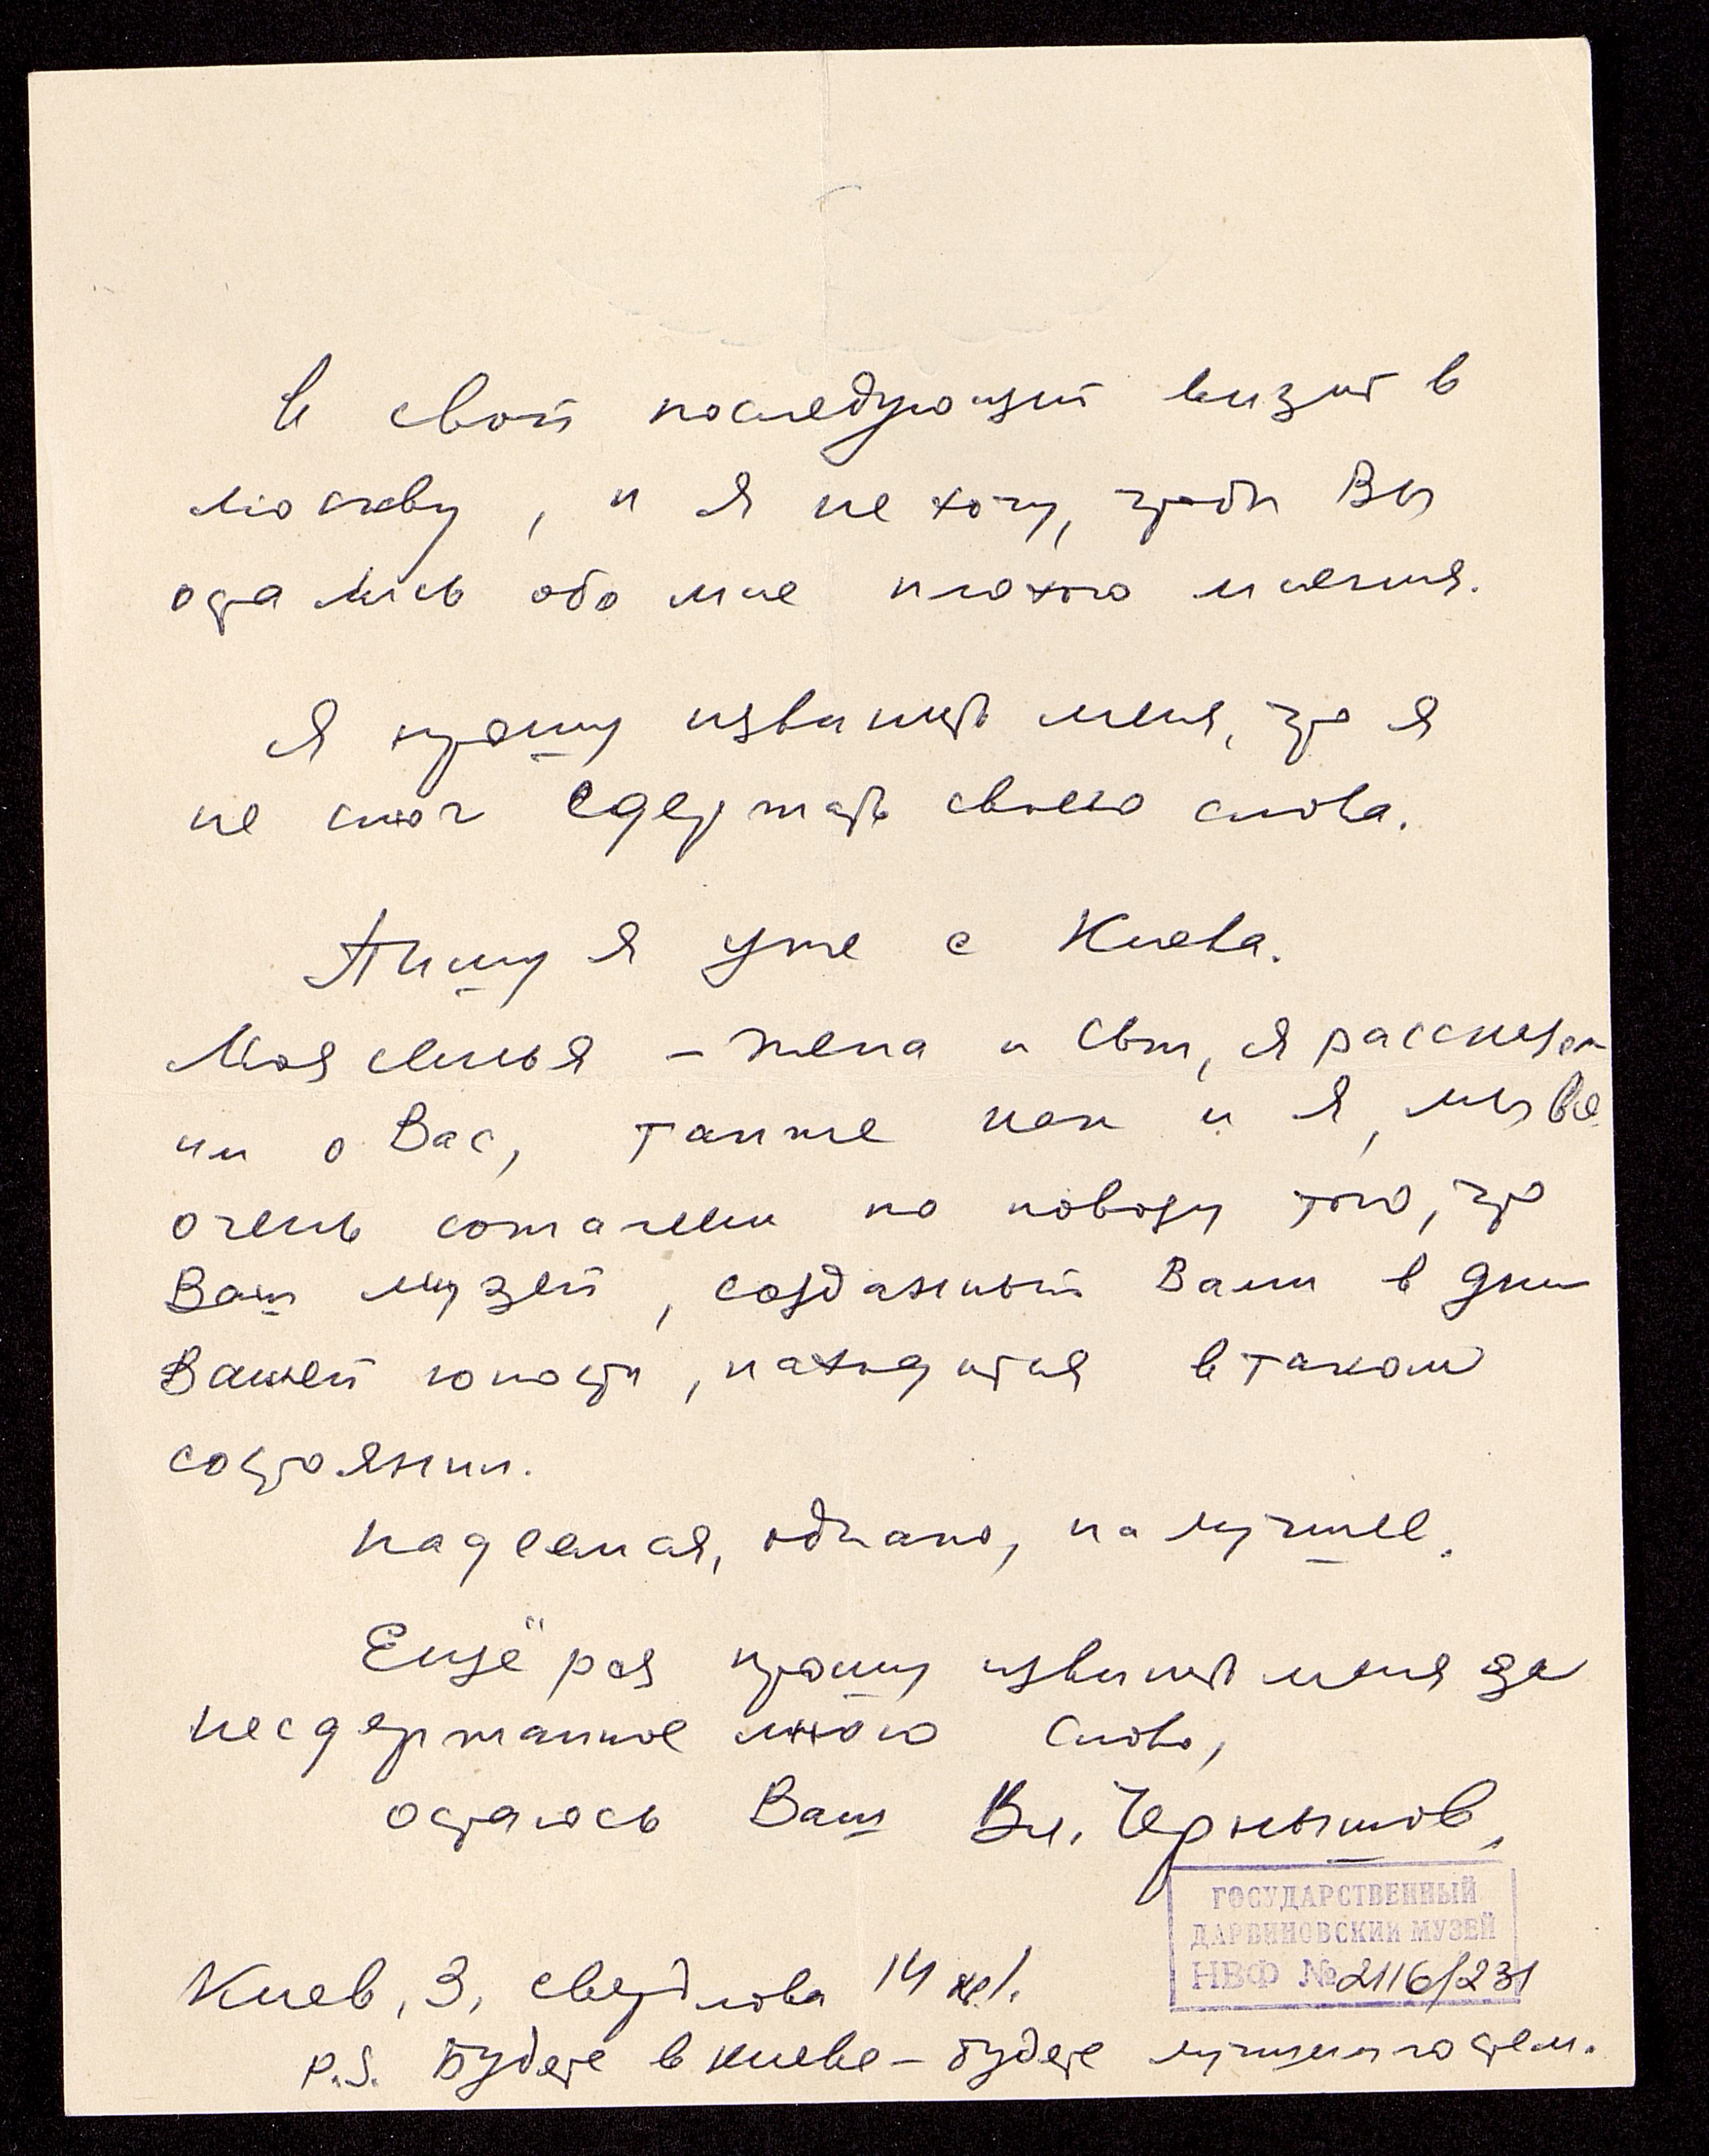 в свой последующий визит в
Москву, и я не хочу, чтобы Вы
остались обо мне плохого мнения.
Я прошу извинить меня, что я
не смог сдержать своего слова.
Пишу я уже с Киева.
Моя семья – жена и сын, я рассказал
им о Вас, также как и я, мы все
очень сожалеем по поводу того, что
Ваш музей, созданный Вами в дни
Вашей юности, находится в таком
состоянии.
Надеемся, однако, на лучшее.
Ещё раз прошу извинить меня за
несдержанное мною слово,
остаюсь Ваш Вл. Чернышов.
ГОСУДАРСТВЕННЫЙ
ДАРВИНОВСКИЙ МУЗЕЙ
НВФ № 2116/231
Киев, 3, Свердлова 14 кв 1.
P.S. Будете в Киеве – будете лучшим гостем.